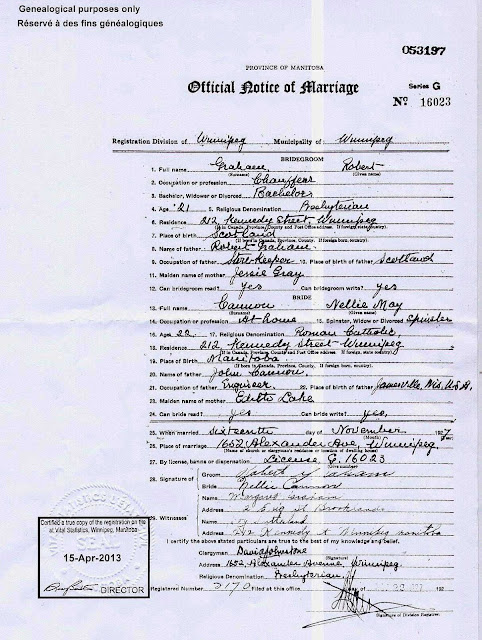 Genealogical purposes only
Réservé à des fins généalogiques
053197
PROVINCE OF MANITOBA
Official Notice of Marriage
Series G
Nº 16023
Registration Division of Winnipeg Municipality of Winnipeg
BRIDEGROOM
1. Full name Graham, Robert
(Surname) (Given name)
2. Occupation or profession Chauffeur
3. Bachelor, Widower or Divorced Bachelor
4. Age 21 5. Religious Denomination Presbyterian
6. Residence 212 Kennedy Street, Winnipeg
(If in Canada, Province, County and Post Office address. If foreign, state country)
7. Place of birth Scotland
(If born in Canada, Province, County. If foreign born, country)
8. Name of father Robert Graham
9. Occupation of father Store-Keeper 10. Place of birth of father Scotland
11. Maiden name of mother Jessie Gray
12. Can bridegroom read? yes Can bridegroom write? yes
BRIDE
13. Full name Cannon Nellie May
(Surname) (Given name)
14. Occupation or profession At home 15. Spinster, Widow or Divorced Spinster
16. Age 22 17. Religious Denomination Roman Catholic
18. Residence 212 Kennedy Street Winnipeg
(If in Canada, Province, County and Post Office address. If foreign, state country)
19. Place of Birth Manitoba
(If born in Canada, Province, County. If foreign born, country)
20. Name of father John Cannon
21. Occupation of father Engineer 22. Place of birth of father Janesville, Wis. U.S.A.
23. Maiden name of mother Edith Lake
24. Can bride read? yes Can bride write? yes
25. When married Sixteenth day of November 1927
(Month) (Year)
26. Place of marriage 1652 Alexander Ave, Winnipeg
(Name of church or clergyman's residence or location of dwelling house)
27. By license, banns or dispensation License G. 16023
(Given number)
28. Signature of
Groom Robert Graham
Bride Nellie Cannon
29. Witnesses
Name Margaret Graham
Address
Name
Address 212 Kennedy St Winnipeg Manitoba
I certify the above stated particulars are true to the best of my knowledge and belief.
Clergyman David Johnstone
(Signature)
Address 1652 Alexander Avenue, Winnipeg
Religious Denomination Presbyterian
Registered Number 3170 Filed at this office 192
Signature of Division Registrar.
Certified a true copy of the registration on file
at Vital Statistics, Winnipeg, Manitoba
15-Apr-2013
DIRECTOR